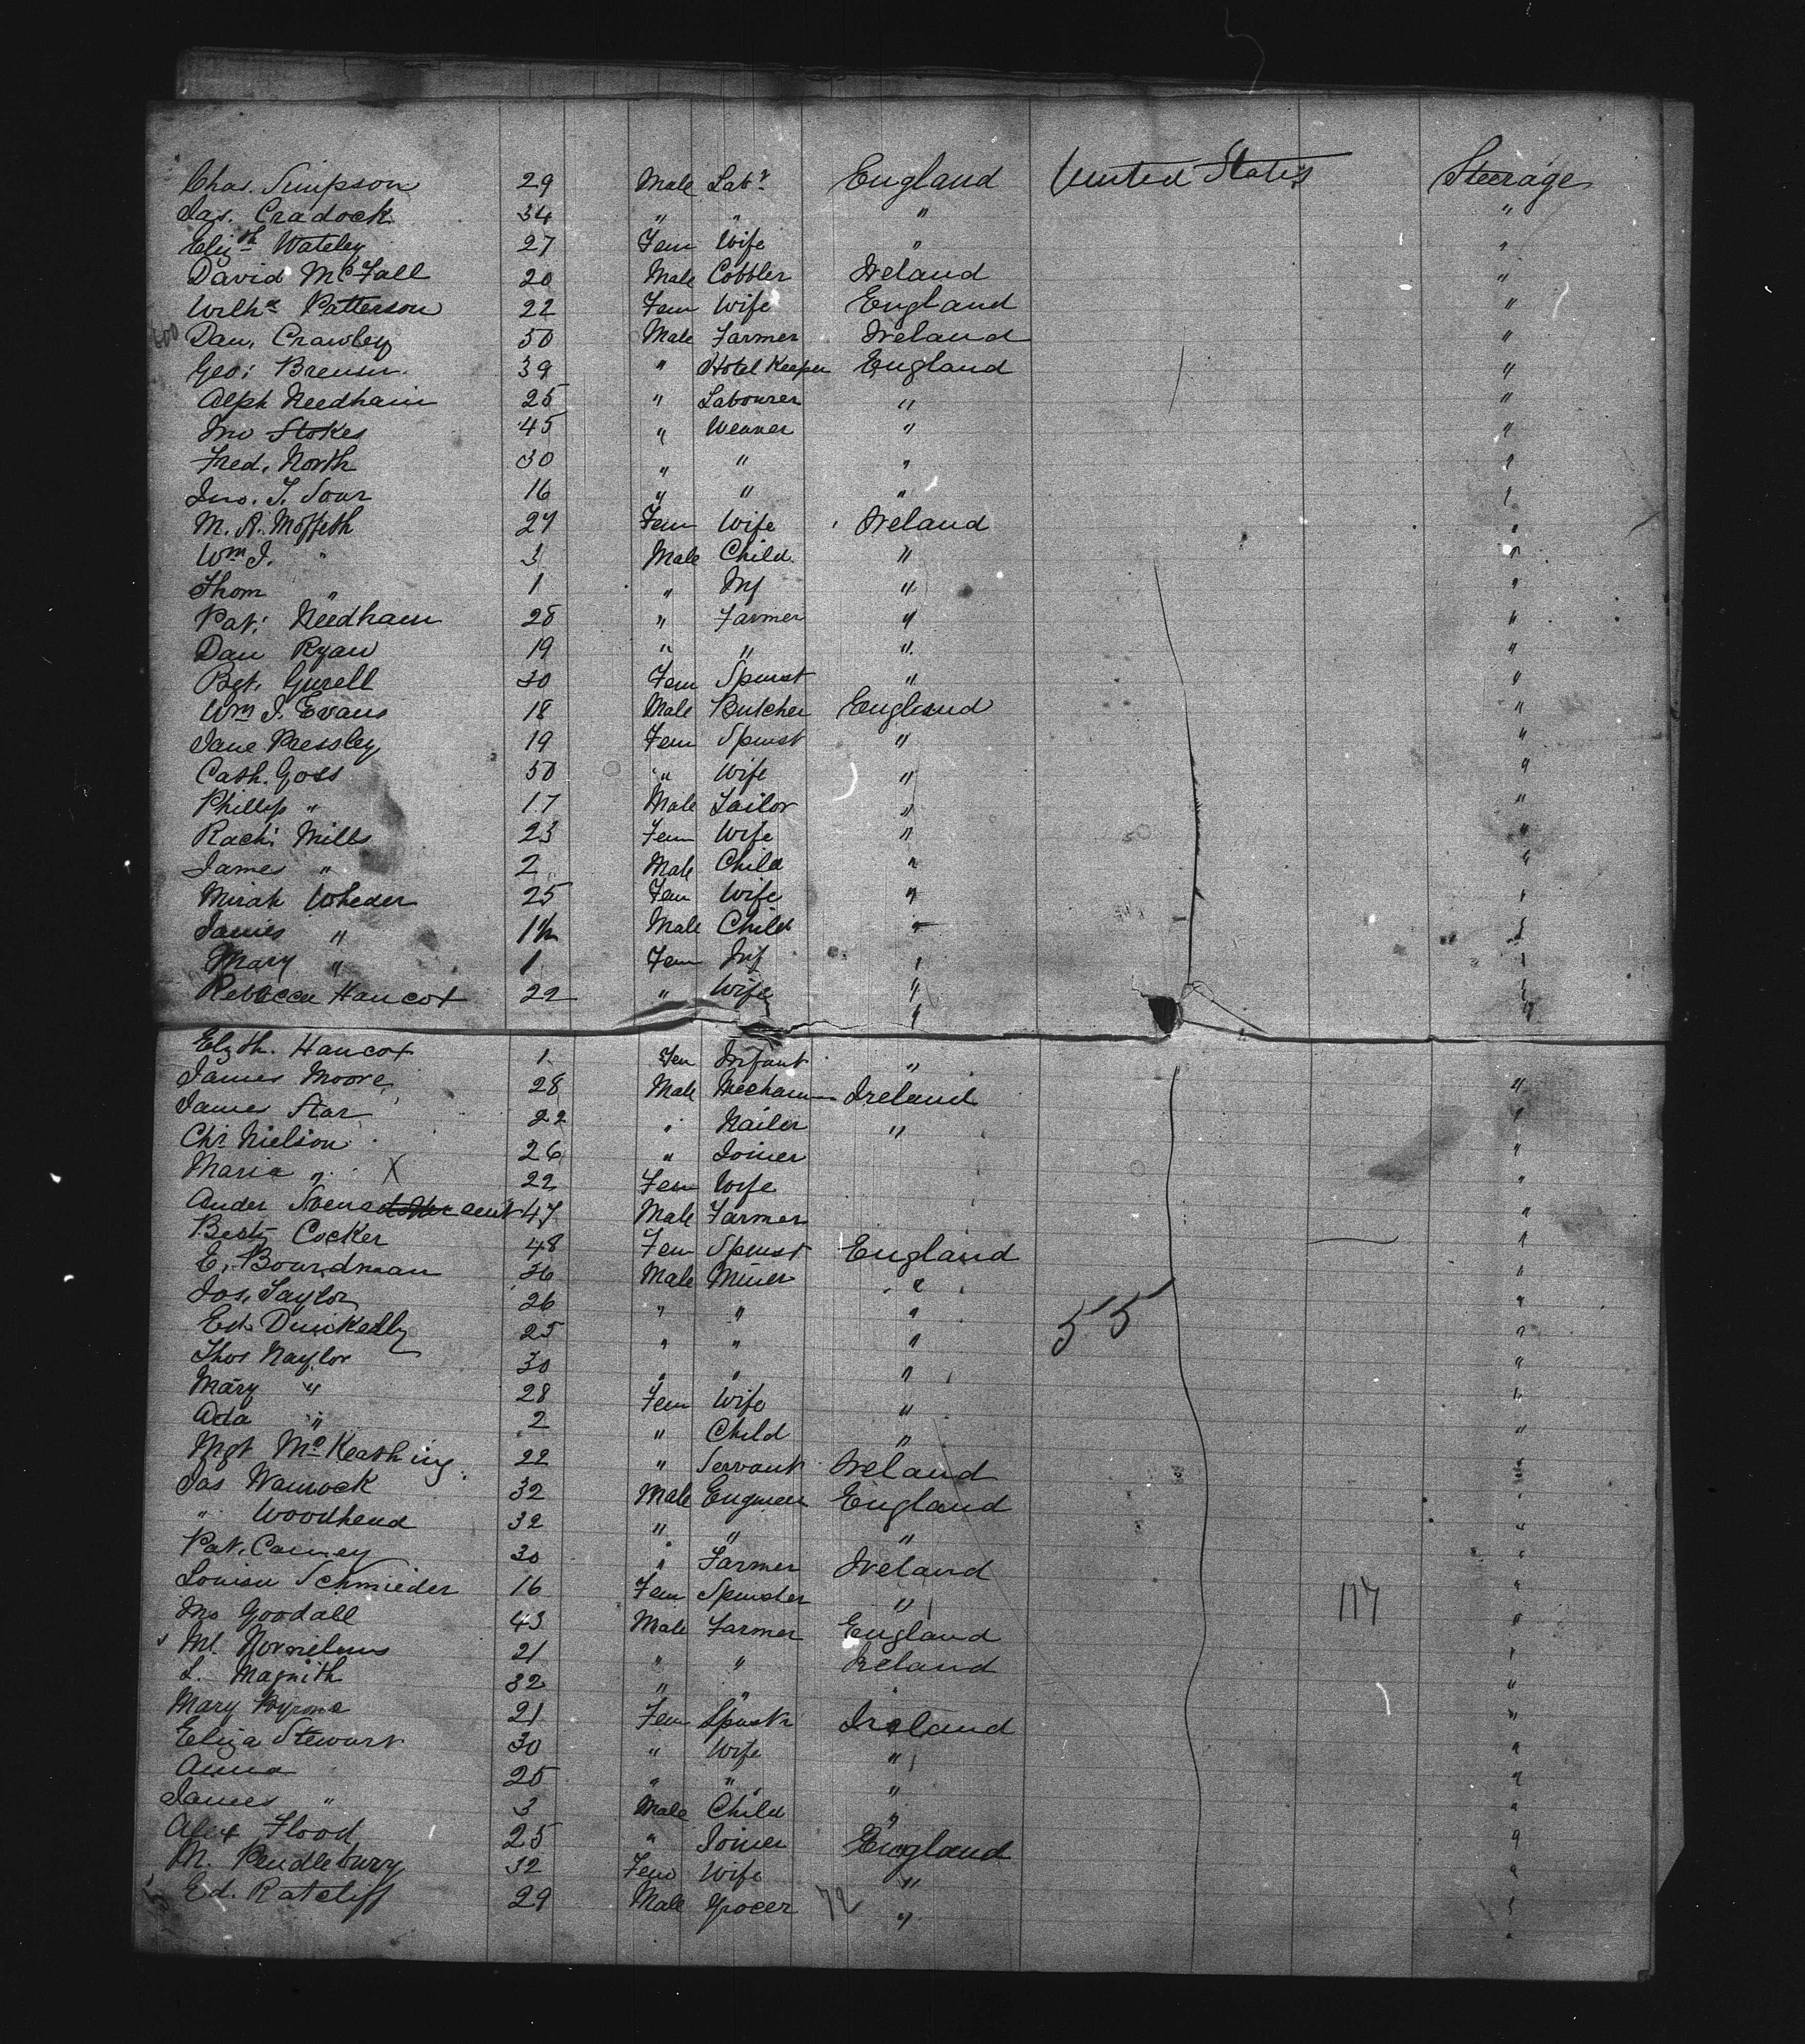 Chas. Simpson 29 Male Labr England United States Steerage
Jas. Cradock 34 " " " "
Elizth Wateley 27 Fem Wife " "
David McFall 20 Male Cobbler Ireland "
Wilha Patterson 22 Fem Wife England "
Dan. Crawley 50 Male Farmer Ireland "
Geo: 39 " Hotel Keeper England "
Alph Needham 25 " Labourer " "
Jno Stokes 45 " Weaver " "
Fred. North 30 " " " "
Jno. T. Sour 16 " " " "
M. A. Moffeth 27 Fem Wife Ireland "
Wm J. " 3 Male Child " "
Thom " 1 " Inf " "
Pat: Needham 28 " Farmer " "
Dan Ryan 19 " " " "
Bgt. Gurell 30 Fem Spinst " "
Wm J. Evans 18 Male Butcher England "
Jane Pressley 19 Fem Spinst " "
Cath. Goss 50 " Wife " "
Phillip " 17 Male Tailor " "
Rach: Mills 23 Fem Wife " "
James " 2 Male Child " "
Mirah Wheder 25 Fem Wife " "
James " 1½ Male Child " "
Mary " 1 Fem Inf " "
Rebecca Hancox 22 " Wife " "
Elzth. Hancox 1 Fem Infant "
James Moore 28 Male Mechan Ireland "
James Star 22 " Nailer " "
Chr Nielson 26 " Joiner "
Maria " X 22 Fem Wife "
Ander 47 Male Farmer "
Besty Cocker 48 Fem Spinst England "
E. Bourdman 36 Male Miner " "
Jos. Taylor 26 " " " "
Ed. Dunkedly 25 " " " 55 "
Thos Naylor 30 " " " "
Mary " 28 Fem Wife " "
Ada " 2 " Child " "
Mgt 22 " Servant Ireland "
Jas Warnock 32 Male Enginen England "
" Woodhead 32 " " " "
Pat. Cainey 30 " Farmer Ireland "
Louisa Schmieder 16 Fem Spinster " 117 "
Jno Goodall 43 Male Farmer England "
Ml. 21 " " Ireland "
L. Magnith 32 " " "
Mary Byrone 21 Fem Spinstr Ireland "
Eliza Stewart 30 " Wife " "
Anna 25 " " " "
James " 3 Male Child " "
Alex Flood 25 " Joiner England "
M. Pendlebury 32 Fem Wife " "
Ed. Ratcliff 29 Male Grocer 72 " "